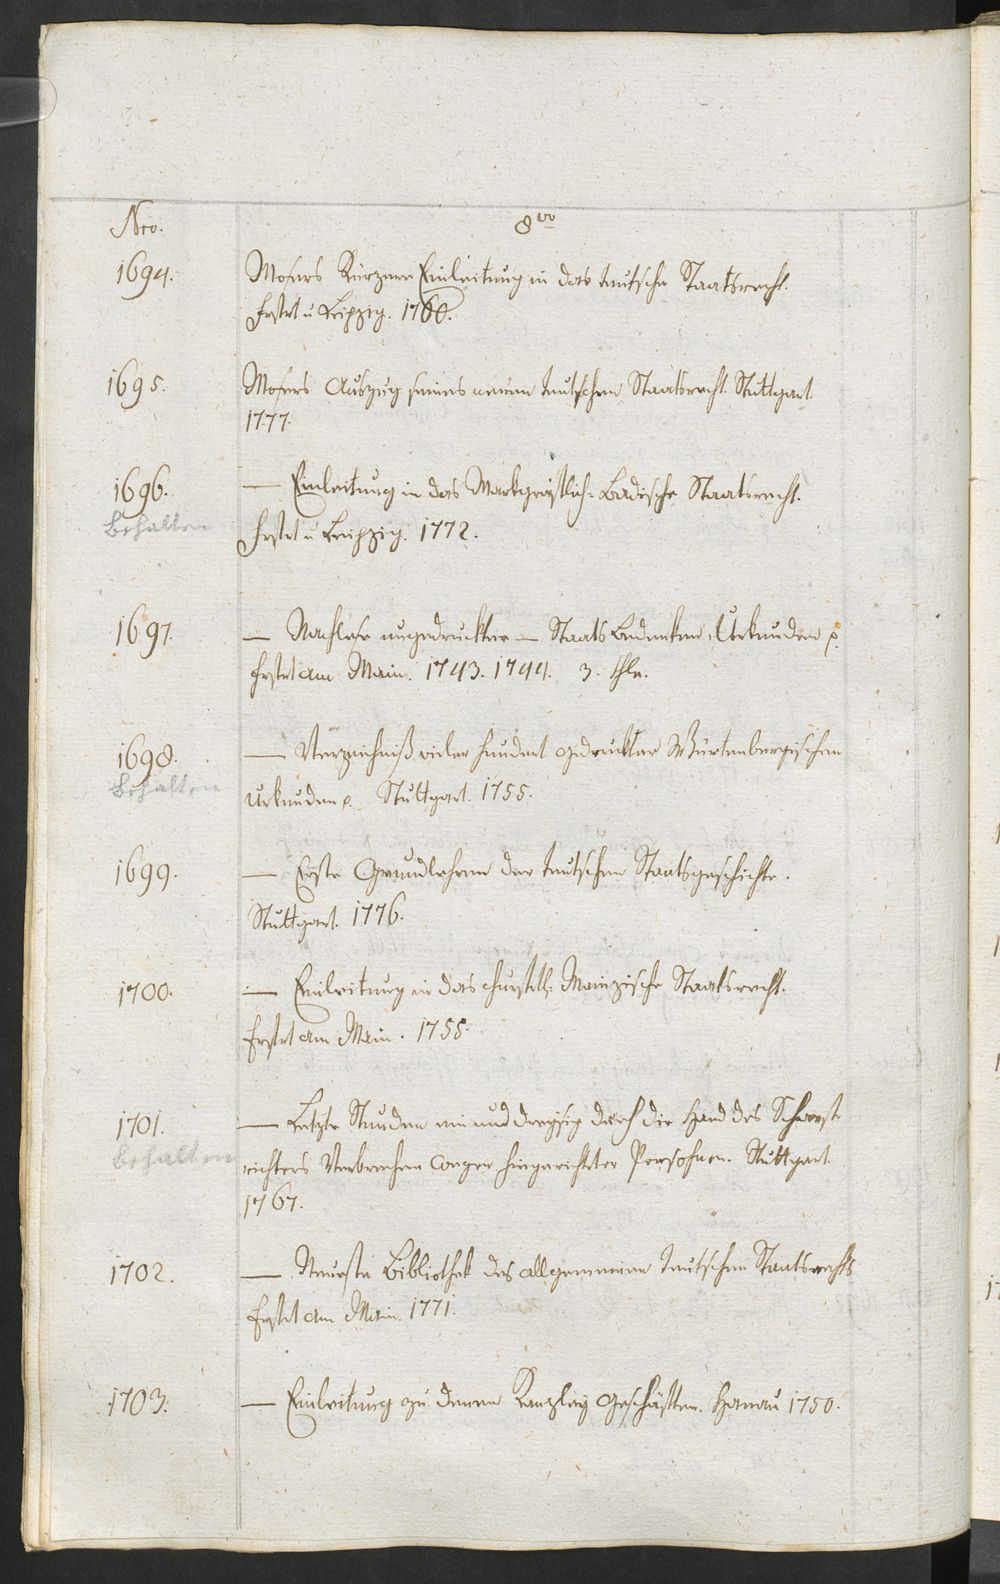 Nro. 8vo
1694. Mosers Kürzere Einleitung in das teutsche Staatsrecht.
Frft u Leipzig. 1760.
1695. Mosers Auszug seines neuen teutschen Staatsrecht Stuttgart.
1777.
1696. — Einleitung in das Markgräflich-Badische Staatsrecht.
behalten Frft u Leipzig. 1772.
1697. — Nachlese ungedruckter — Staats Bedenken, Urkunden p.
Frft am Main. 1743. 1744. 3. thle.
1698. — Verzeichniß vieler hundert gedruckter Würtenbergischen
behalten Urkunden p. Stuttgart. 1755.
1699. — Erste Grundlehren der teutschen Staatsgeschichte.
Stuttgart. 1776.
1700. — Einleitung in das churfstl: Mainzische Staatsrecht.
Frft am Main. 1755.
1701. — Letzte Stunden ein und dreyßig durch die Hand des Scharf-
behalten richters Verbrechen wegen hingerichteter Persohnen. Stuttgart.
1767.
1702. — Neueste Bibliothek des allgemeinen teutschen Staatsrechts
Frft am Main. 1771.
1703. — Einleitung zu denen Kanzley Geschäften. Hanau 1750.